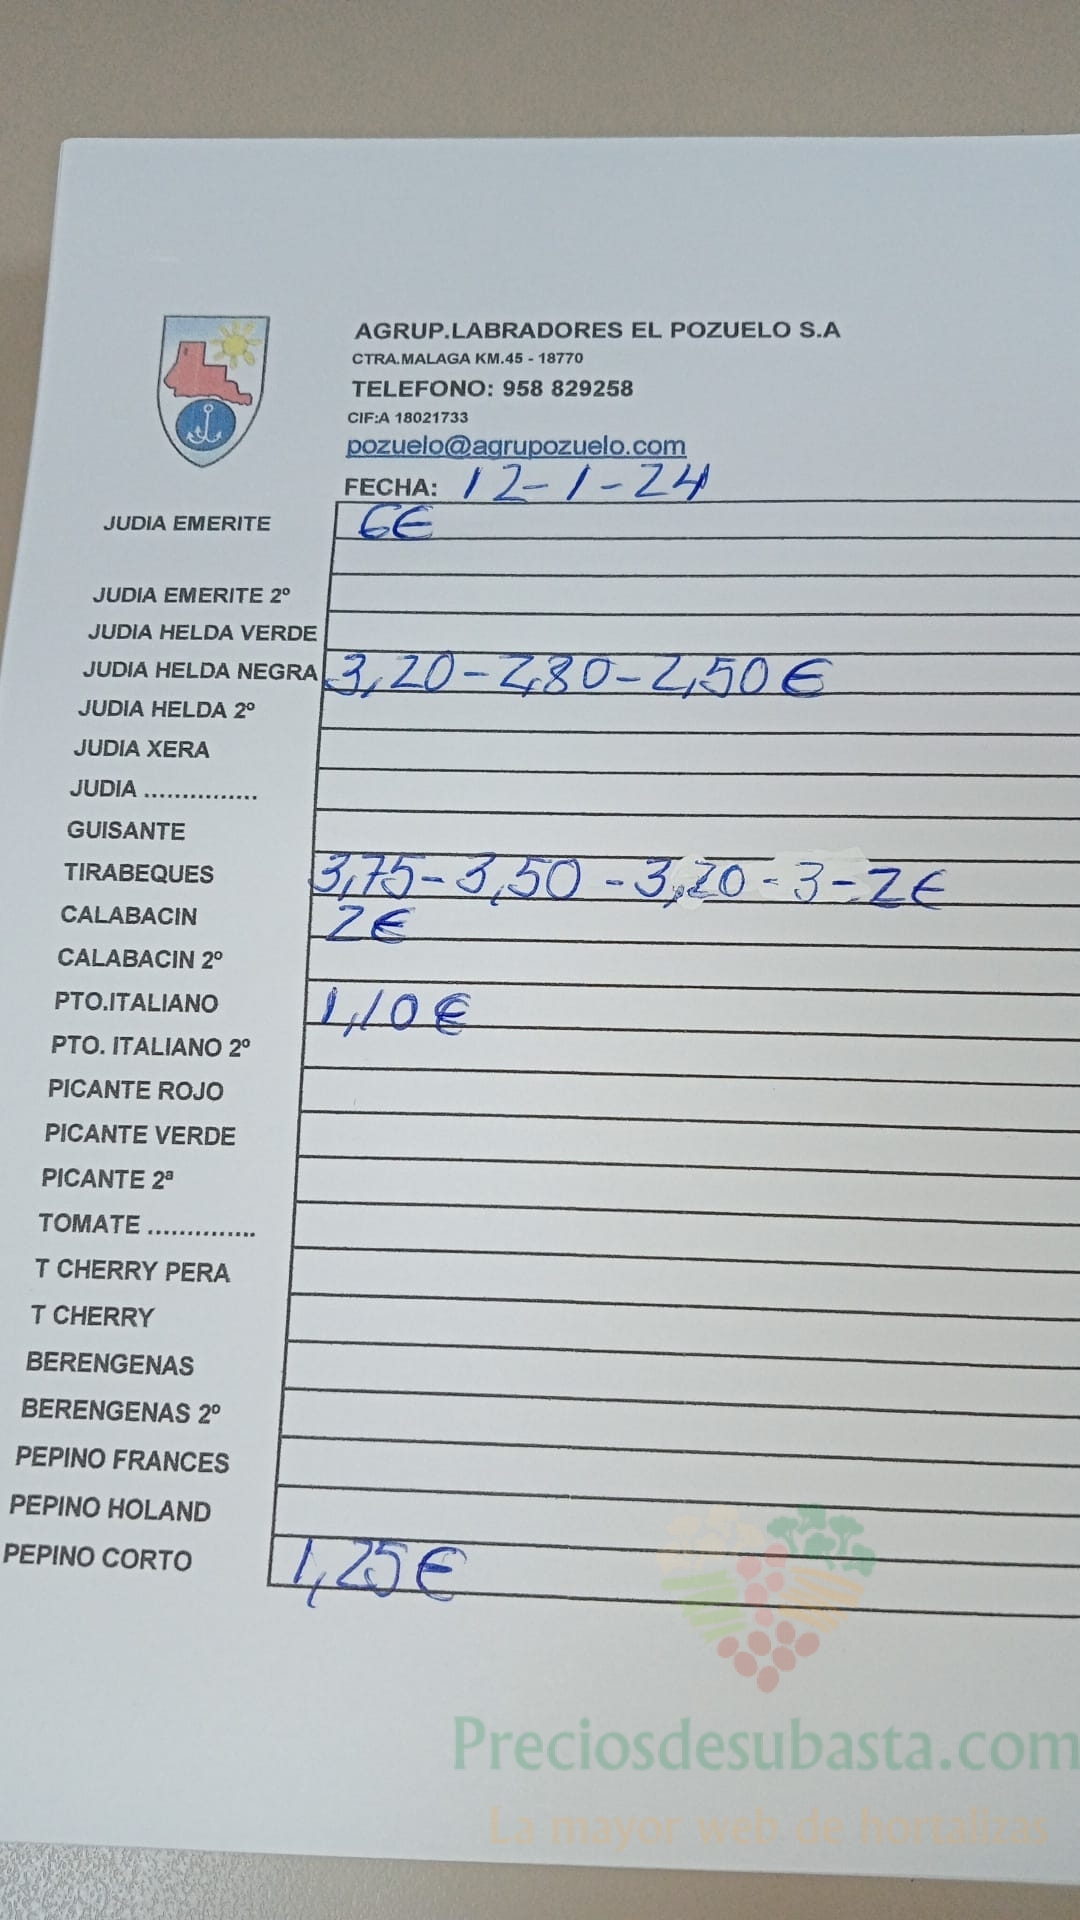 AGRUP.LABRADORES EL POZUELO S.A
CTRA.MALAGA KM.45 - 18770
TELEFONO: 958 829258
CIF:A 18021733
pozuelo@agrupozuelo.com
FECHA: 12-1-24
JUDIA EMERITE 6€
JUDIA EMERITE 2º
JUDIA HELDA VERDE
JUDIA HELDA NEGRA 3,20-2,80-2,50€
JUDIA HELDA 2º
JUDIA XERA
JUDIA ...............
GUISANTE
TIRABEQUES 3,75-3,50-3,20-3-2€
CALABACIN 2€
CALABACIN 2º
PTO.ITALIANO 1,10€
PTO. ITALIANO 2º
PICANTE ROJO
PICANTE VERDE
PICANTE 2ª
TOMATE ..............
T CHERRY PERA
T CHERRY
BERENGENAS
BERENGENAS 2º
PEPINO FRANCES
PEPINO HOLAND
PEPINO CORTO 1,25€
Preciosdesubasta.com
La mayor web de hortalizas